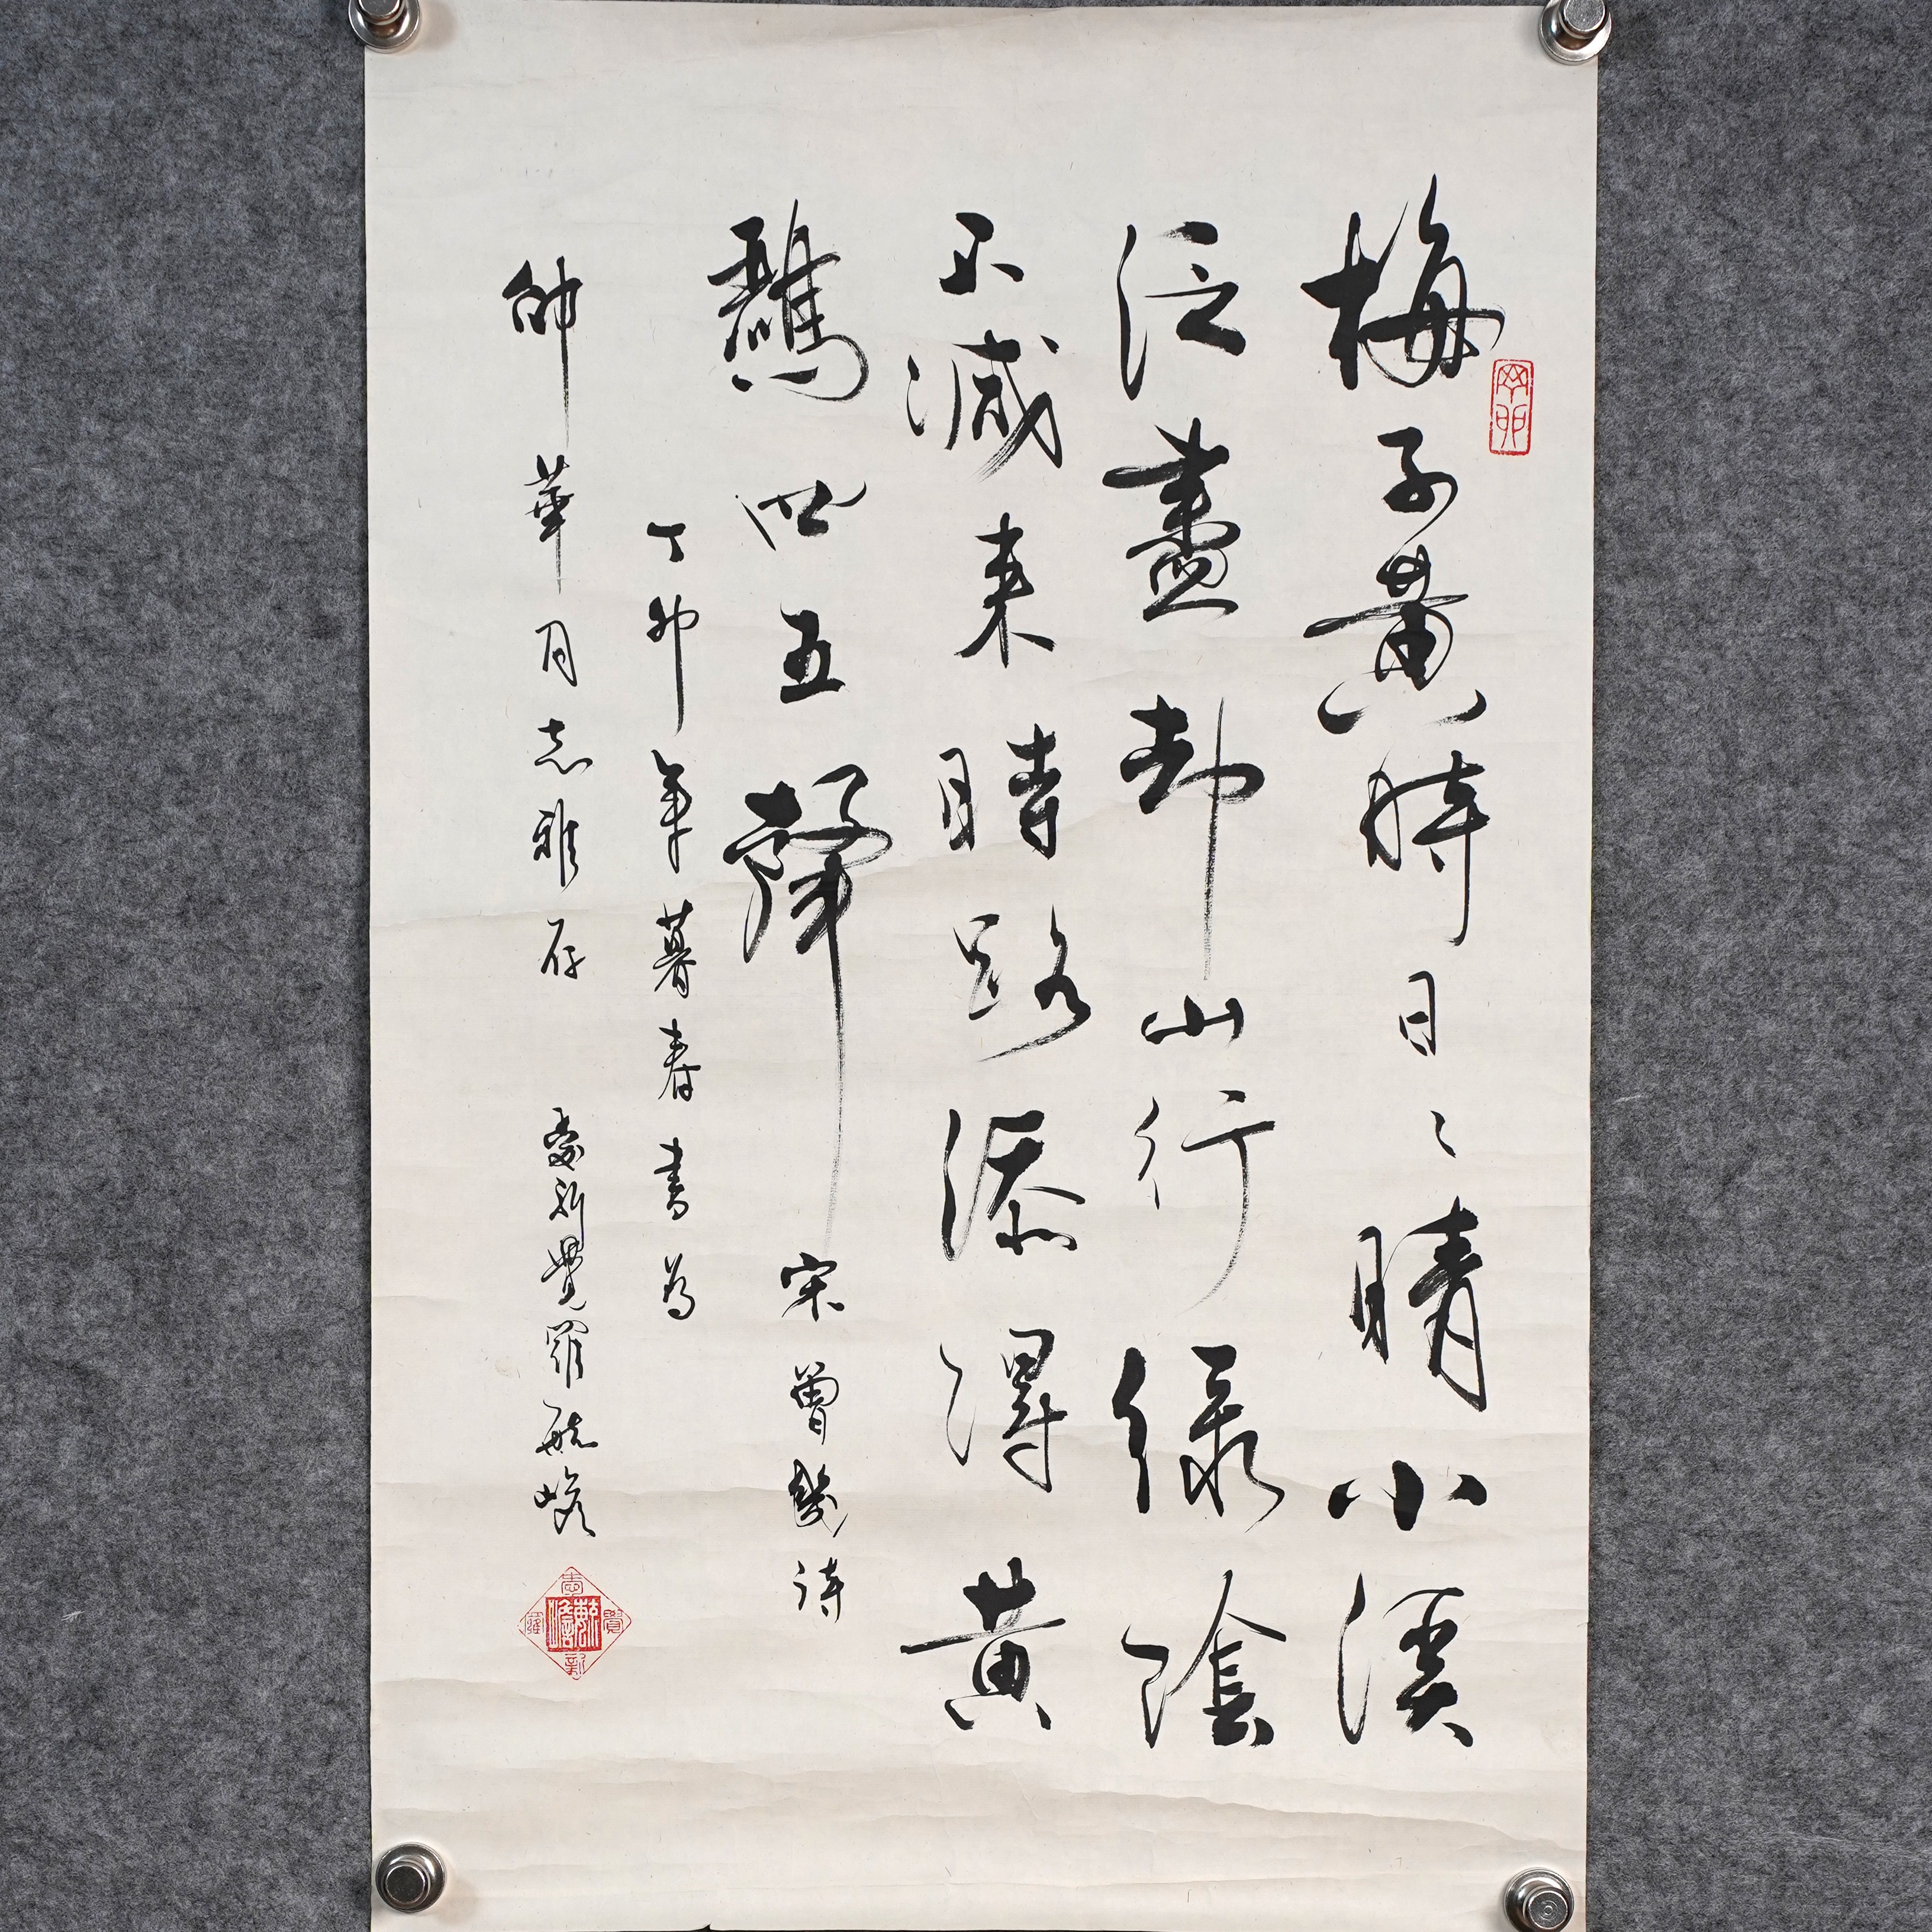 梅子黄時日〻晴小溪
泛盡却山行緑陰
不減来時路添得黄
鸝四五聲
宋曾幾詩
丁卯年暮春書為
帥華同志雅存
愛新覺羅毓峨